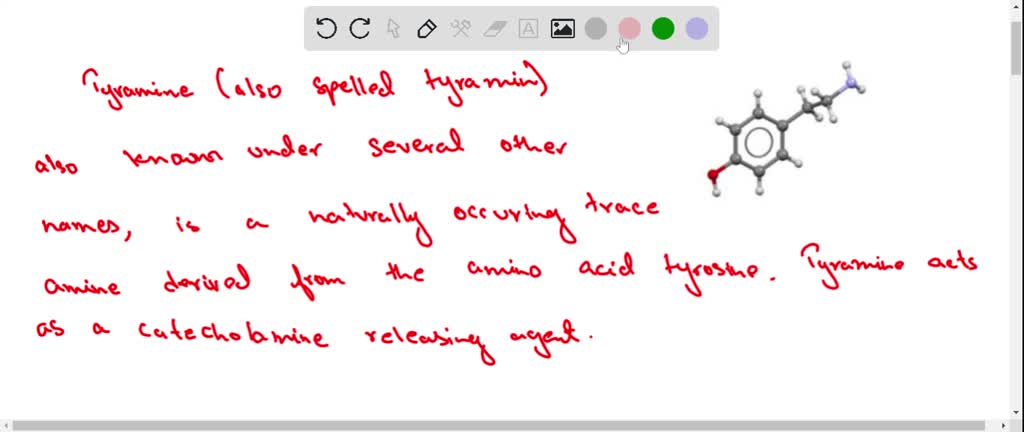 Tyramine (also spelled tyramin)
also known under several other
names, is a naturally occuring trace
amine derived from the amino acid tyrosine. Tyramine acts
as a catecholamine releasing agent.